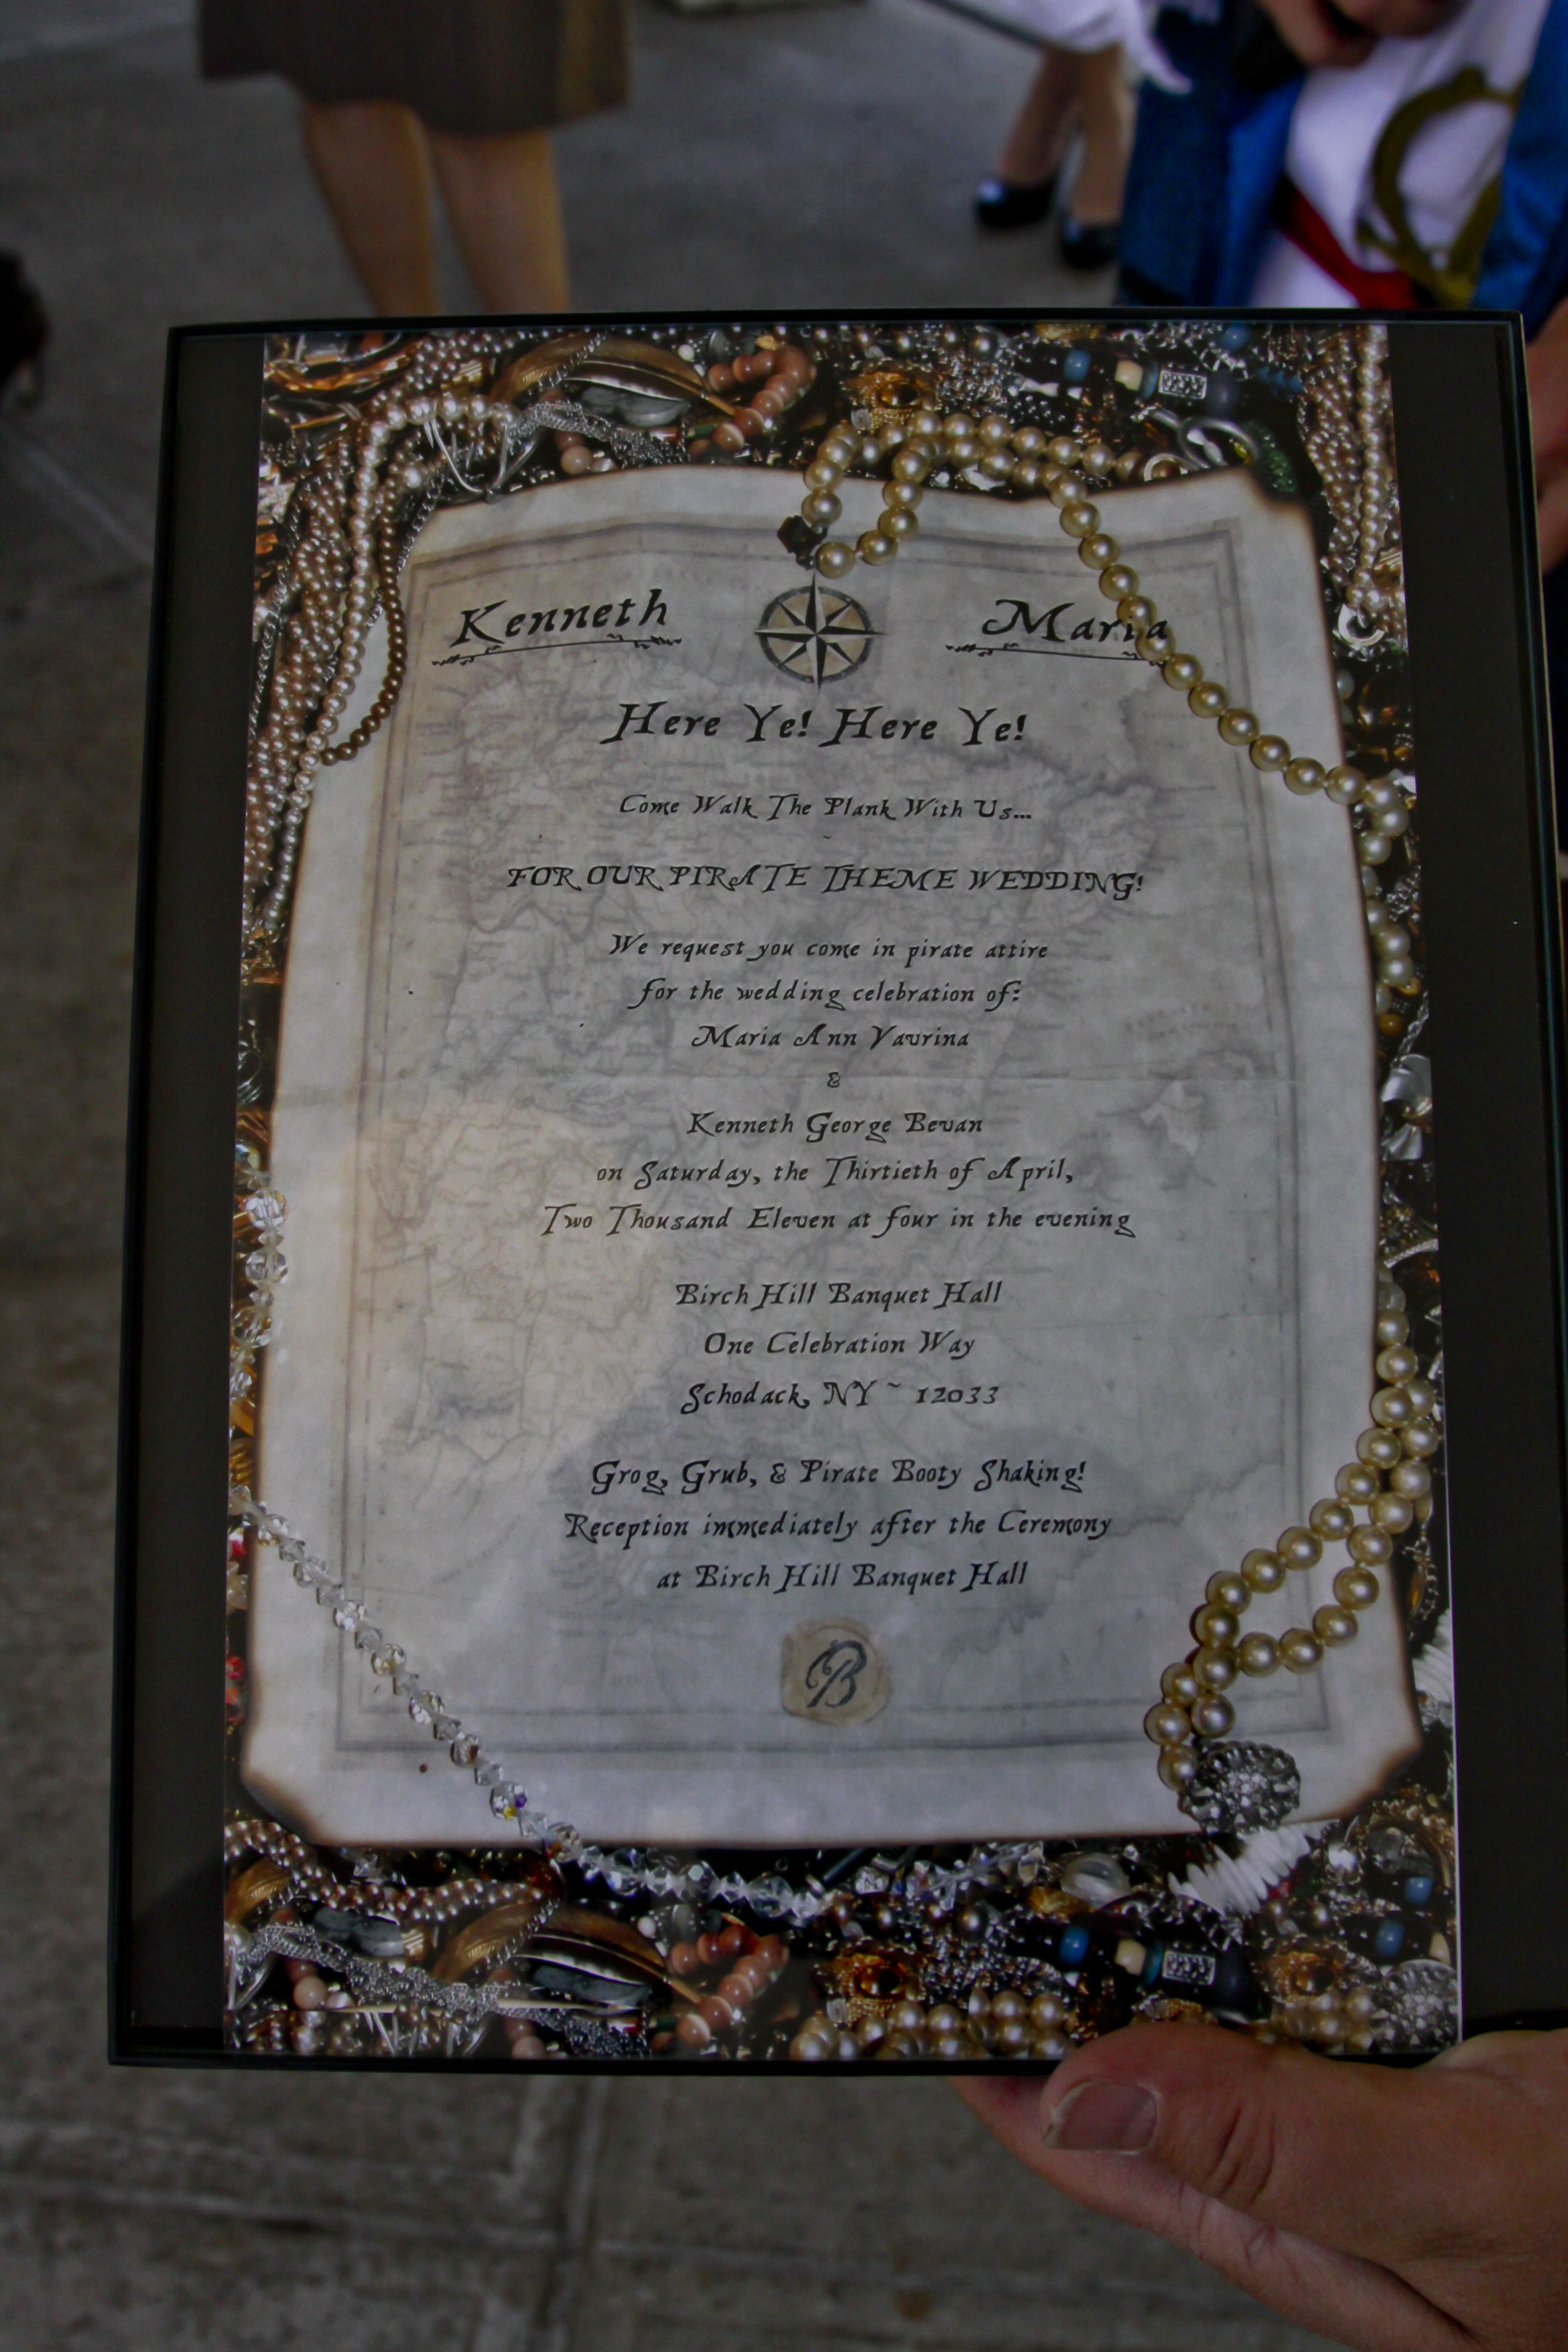 Kenneth Maria
Here Ye! Here Ye!
Come Walk The Plank With Us...
FOR OUR PIRATE THEME WEDDING!
We request you come in pirate attire
for the wedding celebration of:
Maria Ann Vavrina
&
Kenneth George Bevan
on Saturday, the Thirtieth of April,
Two Thousand Eleven at four in the evening
Birch Hill Banquet Hall
One Celebration Way
Schodack, NY ~ 12033
Grog, Grub, & Pirate Booty Shaking!
Reception immediately after the Ceremony
at Birch Hill Banquet Hall
B